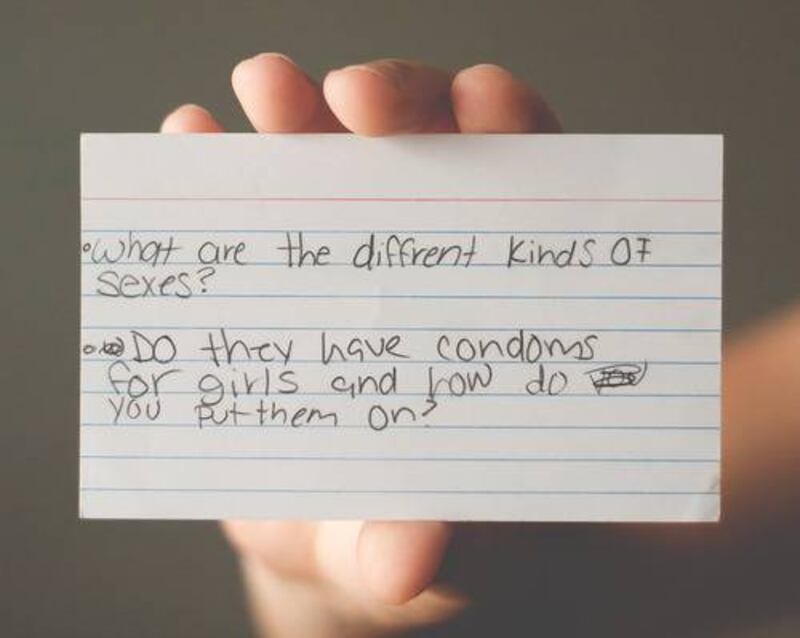 •What are the diffrent kinds of
sexes?
•DO they have condoms
for girls and how do
you put them on?